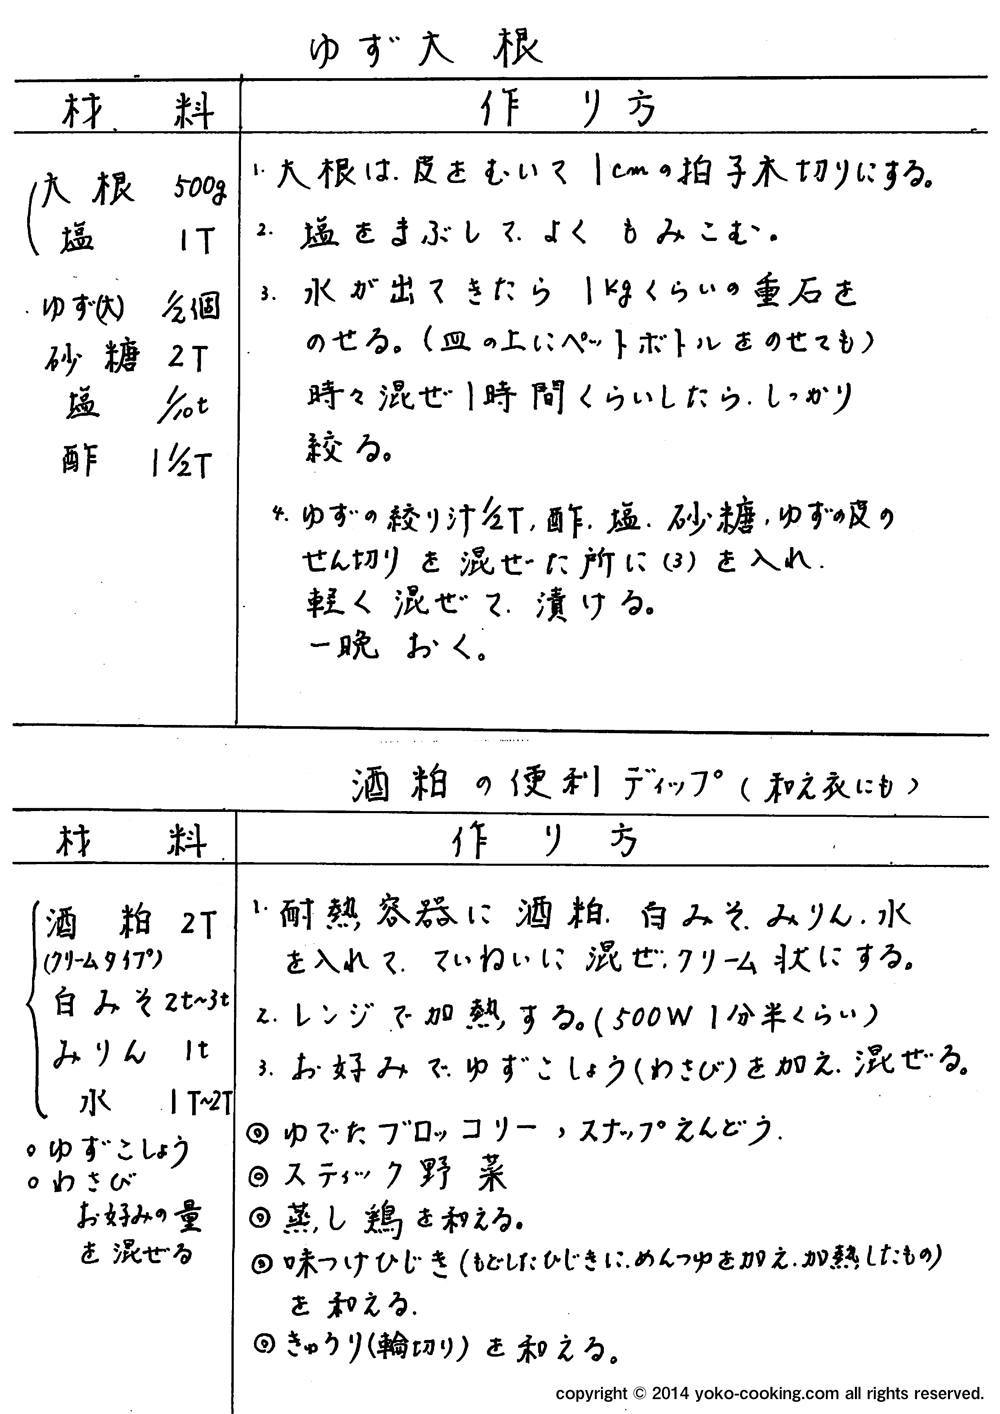 ゆず大根
材料 作り方
大根 500g
塩 1T
ゆず(大) 1/2個
砂糖 2T
塩 1/10t
酢 1 1/2T
1. 大根は、皮をむいて1cmの拍子木切りにする。
2. 塩をまぶして、よくもみこむ。
3. 水が出てきたら1kgくらいの重石を
のせる。(皿の上にペットボトルをのせても)
時々混ぜ1時間くらいしたら、しっかり
絞る。
4. ゆずの絞り汁1/2T、酢、塩、砂糖、ゆずの皮の
せん切りを混ぜた所に(3)を入れ、
軽く混ぜて、漬ける。
一晩おく。
酒粕の便利ディップ(和え衣にも)
材料 作り方
酒粕 2T
(クリームタイプ)
白みそ 2t~3t
みりん 1t
水 1T~2T
○ゆずこしょう
○わさび
お好みの量
を混ぜる
1. 耐熱容器に酒粕、白みそ、みりん、水
を入れて、ていねいに混ぜ、クリーム状にする。
2. レンジで加熱する。(500W 1分半くらい)
3. お好みで、ゆずこしょう(わさび)を加え、混ぜる。
◎ゆでたブロッコリー、スナップえんどう、
◎スティック野菜
◎蒸し鶏を和える。
◎味つけひじき(もどしたひじきに、めんつゆを加え、加熱したもの)
を和える、
◎きゅうり(輪切り)を和える。
copyright © 2014 yoko-cooking.com all rights reserved.